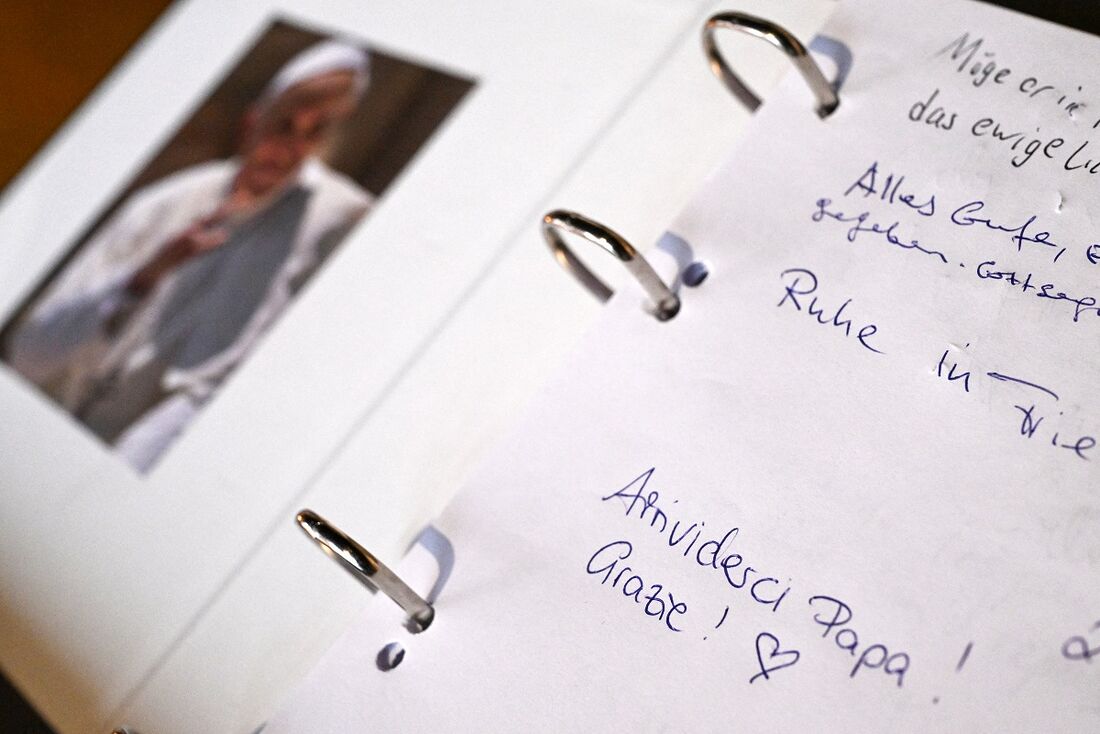 Möge er in
das ewige
Alles Gute,
gegeben. Gott segn
Ruhe in Frie
Arrividesci Papa!
Grazie! ♡